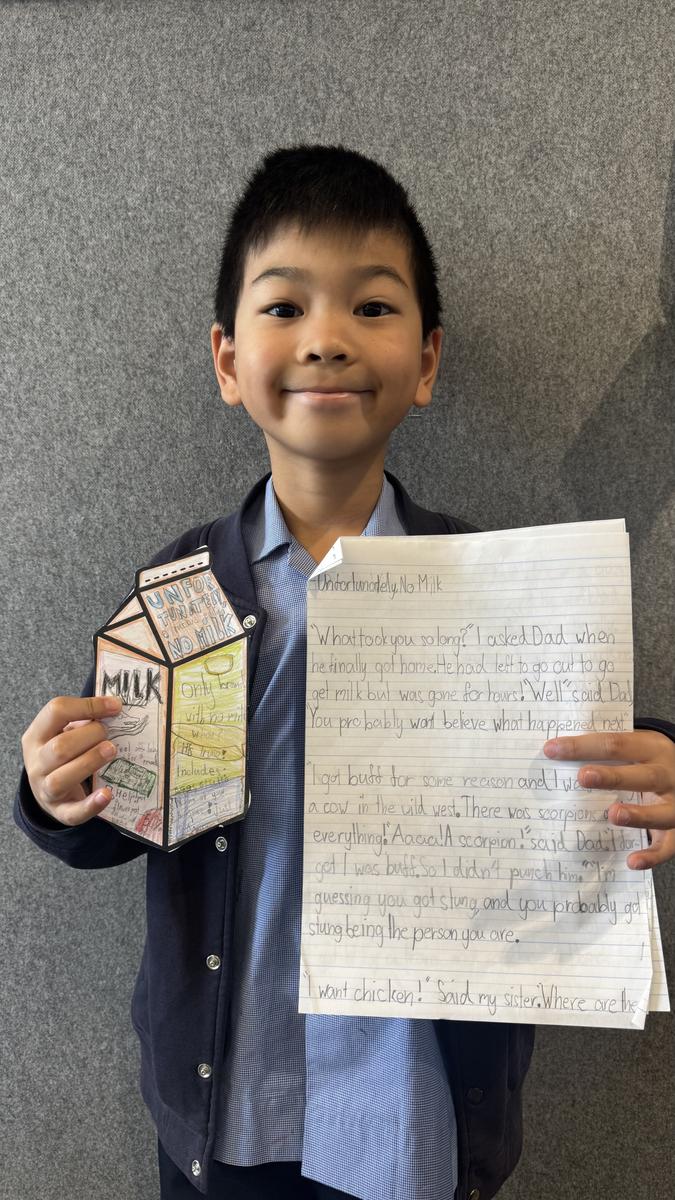 UNFOR
TUNATELY,
NO MILK
MILK
Only
with no milk
what?
It's true!
Includes
Unfortunately, No Milk
"What took you so long?" I asked Dad when
he finally got home. He had left to go out to go
get milk but was gone for hours! "Well" said Dad,
You probably wont believe what happened next"
"I got buff for some reason and I wa
a cow in the wild west. There was scorpions
everything! "Aaaa! A scorpion!" said Dad. "I
got I was buff. So I didn't punch him." "I'm
guessing you got stung, and you probably got
stung being the person you are.
"I want chicken!" Said my sister. "Where are the